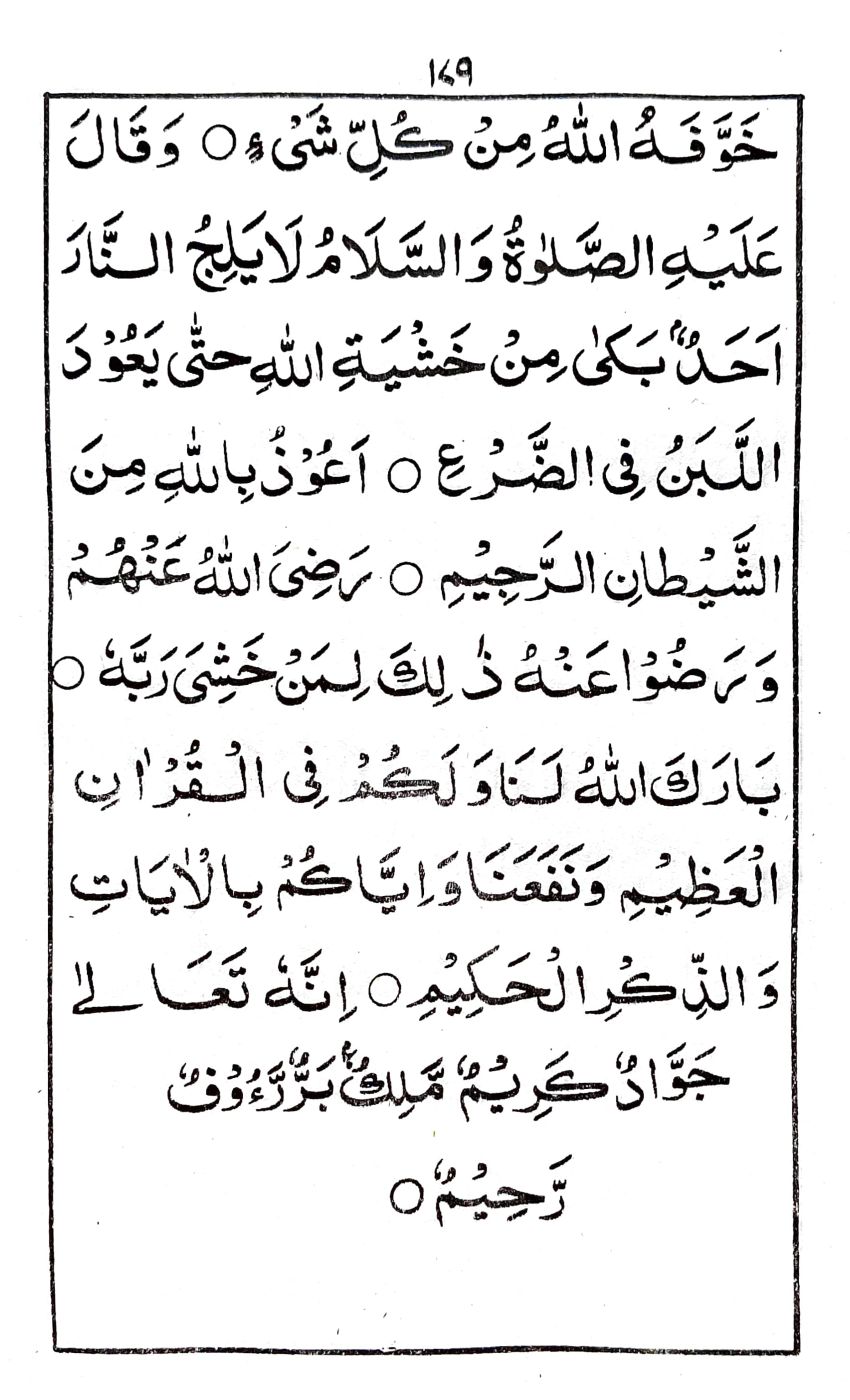 ۱۷۹
خَوَّفَهُ اللّٰهُ مِنْ كُلِّ شَیْءٍ ○ وَقَالَ
عَلَيْهِ الصَّلٰوةُ وَالسَّلَامُ لَا يَلِجُ النَّارَ
اَحَدٌۢ بَكىٰ مِنْ خَشْيَةِ اللّٰهِ حتّٰى يَعُوْدَ
اللَّبَنُ فِی الضَّرْعِ ○ اَعُوْذُ بِاللّٰهِ مِنَ
الشَّيْطانِ الرَّجِيْمِ ○ رَضِیَ اللّٰهُ عَنْهُمْ
وَرَضُوْا عَنْهُ ذٰلِكَ لِمَنْ خَشِیَ رَبَّهٗ ○
بَارَكَ اللّٰهُ لَنَا وَلَكُمْ فِی الْقُرْاٰنِ
الْعَظِيْمِ وَنَفَعَنَا وَاِيَّاكُمْ بِالْاٰيَاتِ
وَالذِّكْرِ الْحَكِيْمِ ○ اِنَّهٗ تَعَالےٰ
جَوَّادٌ كَرِيْمٌ مَّلِكٌۢ بَرٌّ رَّءُوْفٌ
رَّحِيْمٌ ○